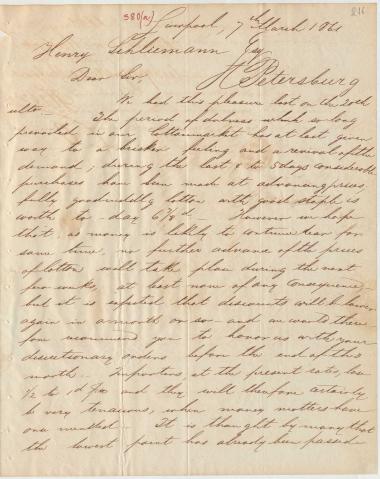 580(a)
216
Liverpool, 7th March 1861
Henry Schliemann Esq
St Petersburg
Dear Sir,
We had this pleasure last on the 20th
ulto. — The period of dulness which so long
prevailed in our Cottonmarket has at last given
way to a brisker feeling and a revival of the
demand; during the last 4 to 5 days considerable
purchases have been made at advancing prices.
fully goodmiddlg cotton with good staple is
worth to-day 6 7/8 d — However we hope
that as money is likely to continue dear for
some time, no further advance of the prices
of cotton will take place during the next
few weeks, at least none of any consequence —
but it is expected that discounts will be lower
again in a month or so and we want there
fore recommend you to honor us with your
discretionary orders before the end of this
month. — Importers, at the present rates, lose
1/2 to 1d and they will therefore certainly
be very tenacious, when money matters have
once mended — It is thought by many that
the lowest point has already been passed